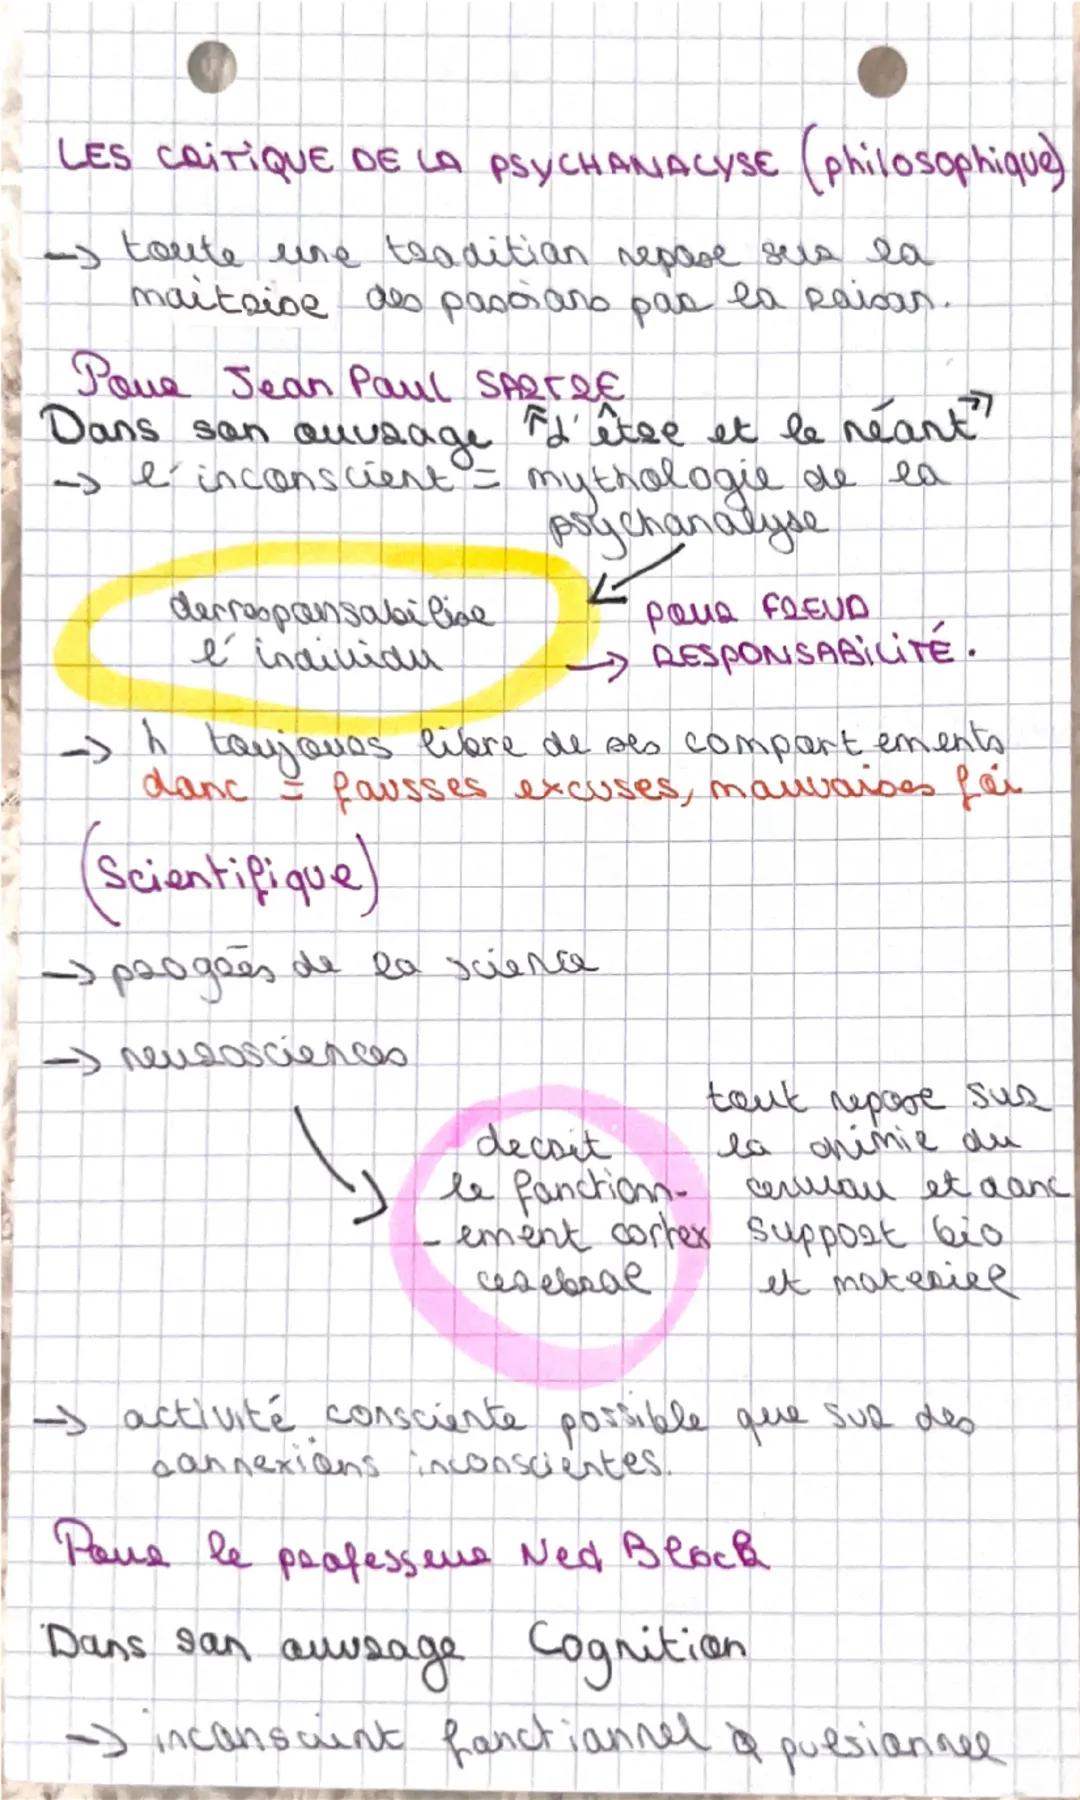 LES CRITIQUE DE LA PSYCHANALYSE (philosophique)
-> toute une tradition repose sur la
maitrise des passions par la raison.
Pour Jean Paul SARTRE
Dans son ouvrage "L'être et le néant"
-> l'inconscient = mythologie de la
psychanalyse
derresponsabilise
l'individu
pour FREUD
-> RESPONSABILITÉ.
-> h toujours libre de ses comportements
donc = fausses excuses, mauvaises foi
(Scientifique)
-> progrès de la science
-> neurosciences
decrit
le fonctionn-
-ement cortex
cerebral
tout repose sur
la chimie du
cerveau et donc
support bio
et materiel
-> activité consciente possible que sur des
connexions inconscientes.
Pour le professeur Ned Block
Dans son ouvrage Cognition
-> inconscient fonctionnel pulsionnel